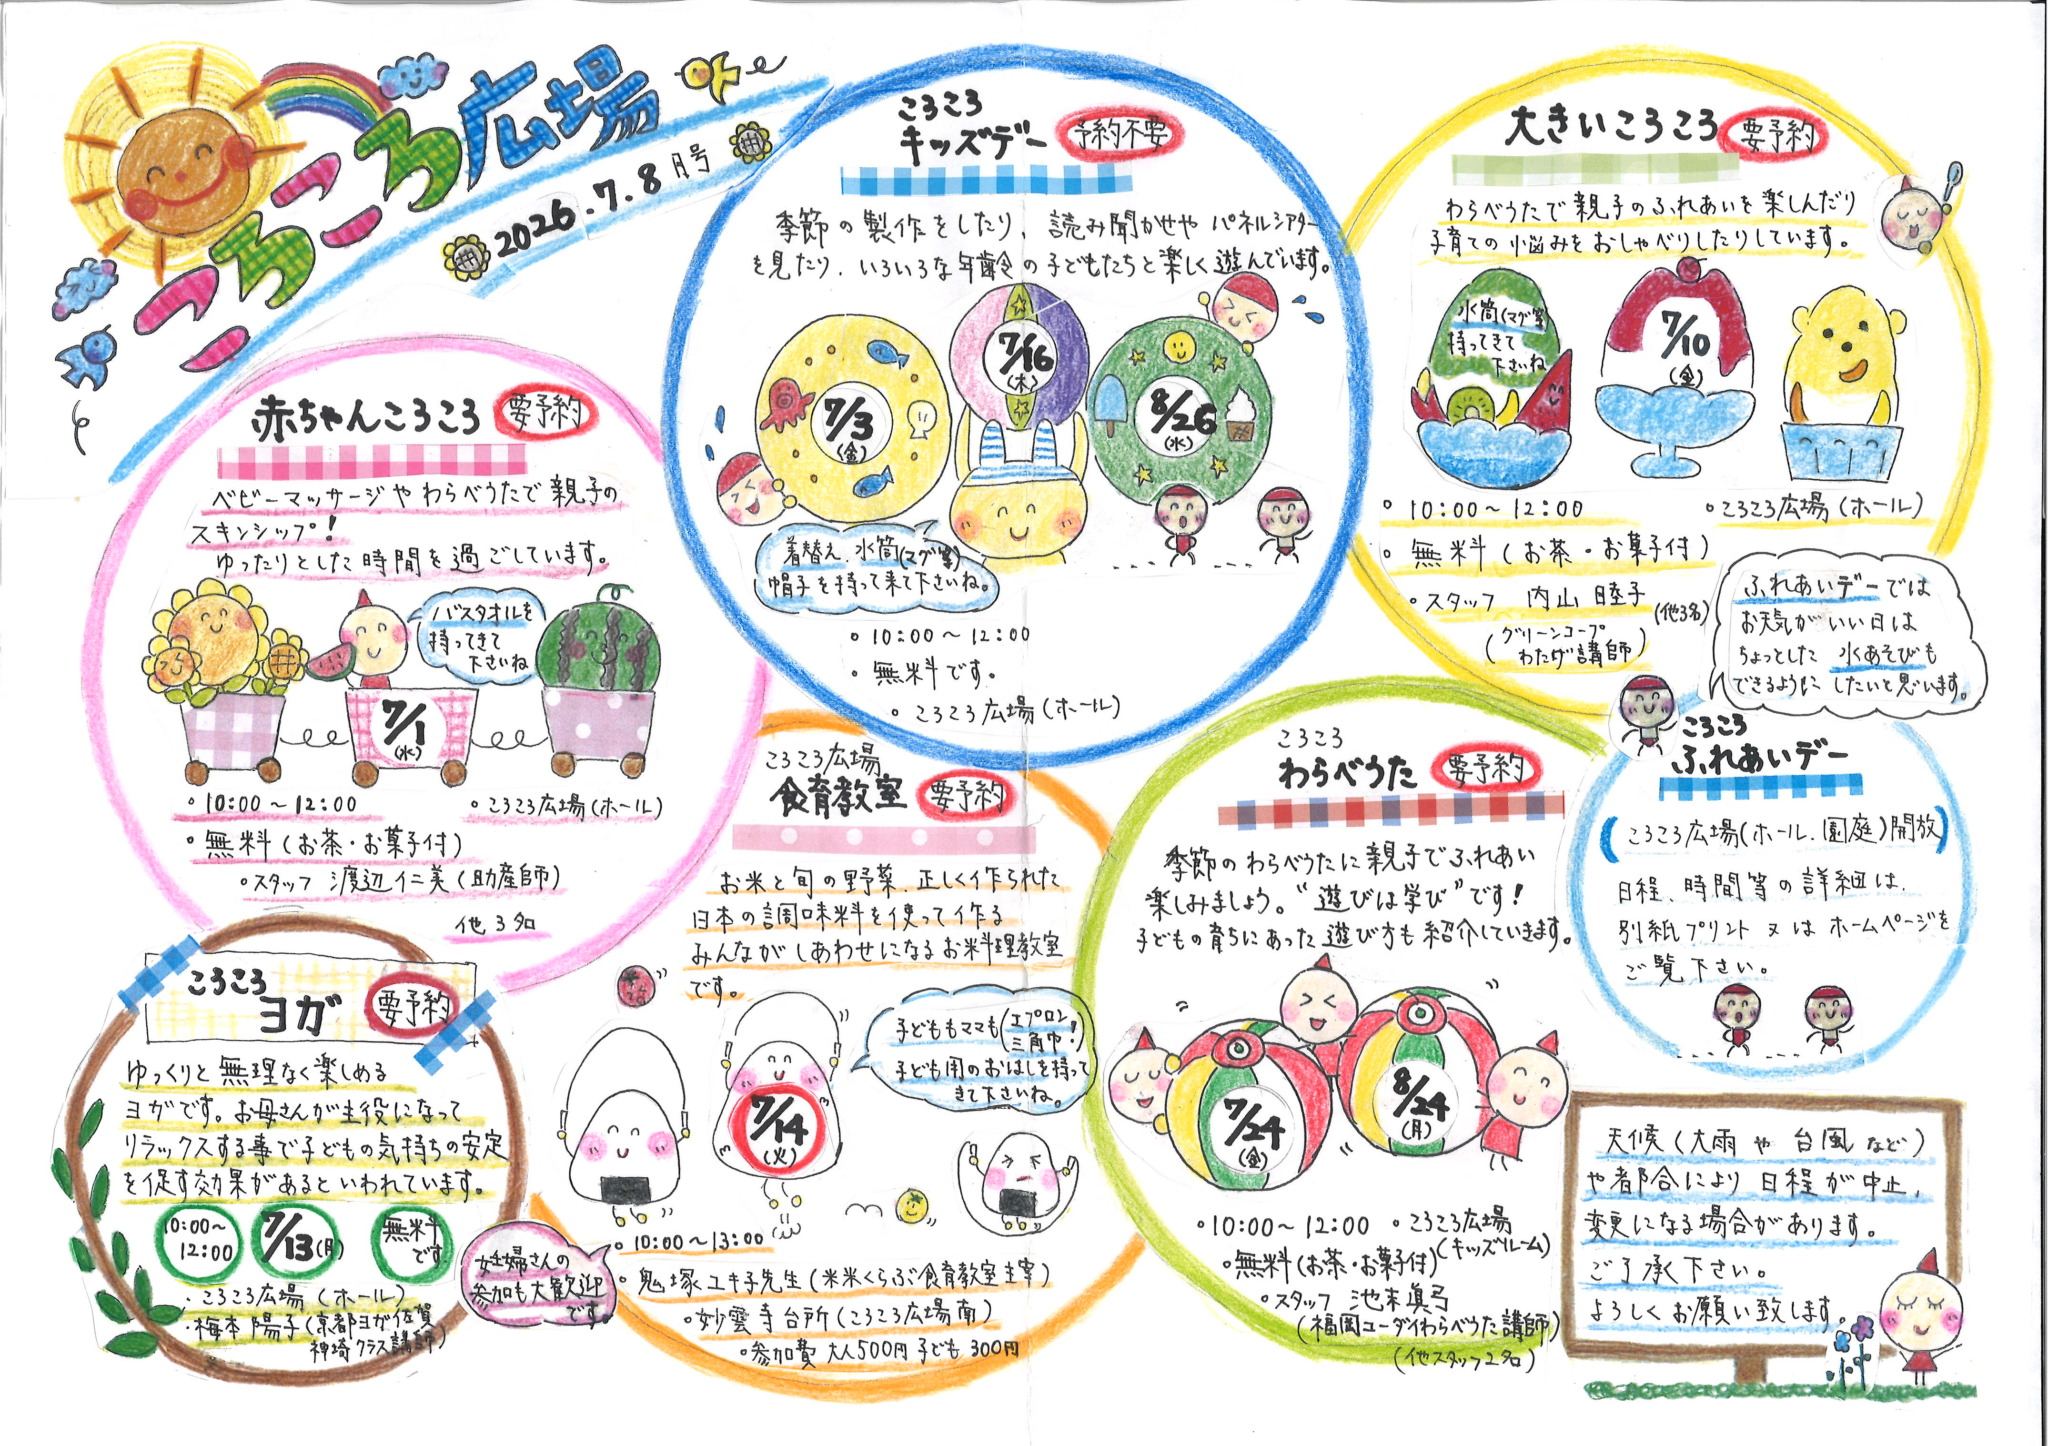 ころころ広場
2026.7.8月号
ころころ
キッズデー
予約不要
季節の製作をしたり、読み聞かせや パネルシアター
を見たり、いろいろな年齢の子どもたちと楽しく遊んでいます。
7/3
(金)
7/16
(木)
8/26
(水)
着替え、水筒(マグ等)
帽子を持って来て下さいね。
◦10:00～12:00
◦無料です。
◦ころころ広場(ホール)
大きいころころ
要予約
わらべうたで親子のふれあいを楽しんだり
子育ての悩みをおしゃべりしたりしています。
水筒(マグ等)
持ってきて
下さいね
7/10
(金)
◦10:00～12:00
◦ころころ広場(ホール)
◦無料(お茶・お菓子付)
◦スタッフ 内山 睦子
(他3名)
(グリーンコープ
わたげ講師)
赤ちゃんころころ
要予約
ベビーマッサージやわらべうたで親子の
スキンシップ!
ゆったりとした時間を過ごしています。
バスタオルを
持ってきて
下さいね
7/1
(水)
◦10:00～12:00
◦ころころ広場(ホール)
◦無料(お茶・お菓子付)
◦スタッフ 渡辺 仁美(助産師)
他3名
ころころ広場
食育教室
要予約
お米と旬の野菜、正しく作られた
日本の調味料を使って作る
みんながしあわせになるお料理教室
です。
子どももママも(エプロン
三角巾!)
子ども用のおはしを持って
きて下さいね。
7/14
(火)
◦10:00～13:00
◦鬼塚ユキ子先生(米米くらぶ食育教室主宰)
◦妙雲寺台所(ころころ広場南)
◦参加費 大人500円 子ども 300円
妊婦さんの
参加も大歓迎
です。
ころころ
わらべうた
要予約
季節のわらべうたに親子でふれあい
楽しみましょう。“遊びは学び”です!
子どもの育ちにあった遊び方も紹介していきます。
7/24
(金)
8/24
(月)
◦10:00～12:00 ◦ころころ広場
(キッズルーム)
◦無料(お茶・お菓子付)
◦スタッフ 池末眞弓
(福岡コーダイわらべうた講師)
(他スタッフ2名)
ふれあいデーでは
お天気がいい日は
ちょっとした 水あそびも
できるように したいと思います。
ころころ
ふれあいデー
(ころころ広場(ホール、園庭)開放)
日程、時間等の詳細は、
別紙プリント又はホームページを
ご覧下さい。
ころころ
ヨガ
要予約
ゆっくりと無理なく楽しめる
ヨガです。お母さんが主役になって
リラックスする事で子どもの気持ちの安定
を促す効果があるといわれています。
10:00～
12:00
7/13(月)
無料
です
・ころころ広場(ホール)
・梅本 陽子(京都ヨガ佐賀
神埼クラス講師)
天候(大雨や台風など)
や都合により日程が中止、
変更になる場合があります。
ご了承下さい。
よろしくお願い致します。